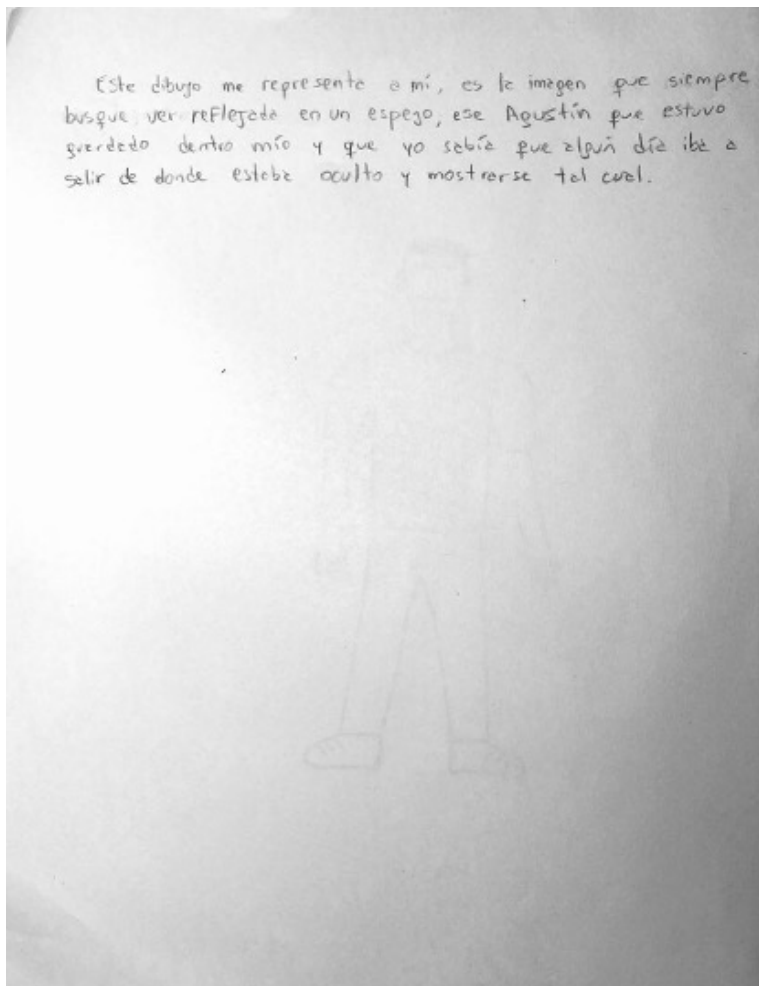 Este dibujo me representa a mí, es la imagen que siempre
busque ver reflejada en un espejo, ese Agustín que estuvo
guardado dentro mío y que yo sabía que algún día iba a
salir de donde estaba oculto y mostrarse tal cual.